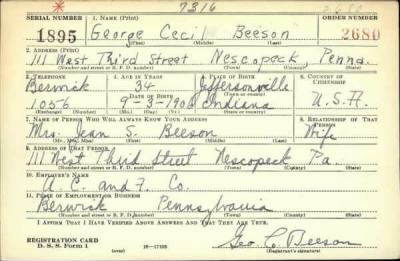 * 7316 2680
SERIAL NUMBER 1. NAME (Print) ORDER NUMBER
1895 George Cecil Beeson 2680
(First) (Middle) (Last)
2. ADDRESS (Print)
111 West Third Street Nescopeck, Penna.
(Number and street or R. F. D. number) (Town) (County) (State)
3. TELEPHONE 4. AGE IN YEARS 5. PLACE OF BIRTH 6. COUNTRY OF CITIZENSHIP
Berwick 34 Jeffersonville
DATE OF BIRTH
1056 9-3-1906 Indiana U.S.A.
(Exchange) (Number) (Mo.) (Day) (Yr.) (State or country)
7. NAME OF PERSON WHO WILL ALWAYS KNOW YOUR ADDRESS 8. RELATIONSHIP OF THAT PERSON
Mrs. Jean S. Beeson Wife
(Mr., Mrs., Miss) (First) (Middle) (Last)
9. ADDRESS OF THAT PERSON
111 West Third Street Nescopeck Pa.
(Number and street or R. F. D. number) (Town) (County) (State)
10. EMPLOYER'S NAME
A. C. and F. Co.
11. PLACE OF EMPLOYMENT OR BUSINESS
Berwick Pennsylvania
(Number and street or R. F. D. number) (Town) (County) (State)
I AFFIRM THAT I HAVE VERIFIED ABOVE ANSWERS AND THAT THEY ARE TRUE.
REGISTRATION CARD
D. S. S. Form 1 16-17105 Geo C. Beeson
(Registrant's signature)